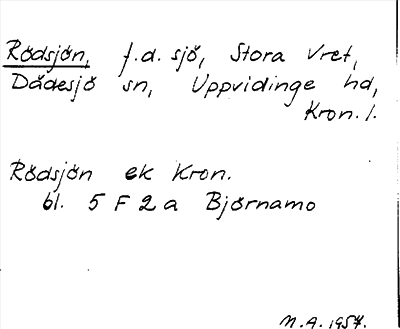 Rödsjön, f.d. sjö, Stora Vret,
Dädesjö sn, Uppvidinge hd,
Kron. l.
Rödsjön ek Kron.
bl. 5 F 2 a Björnamo
M.A. 1957.